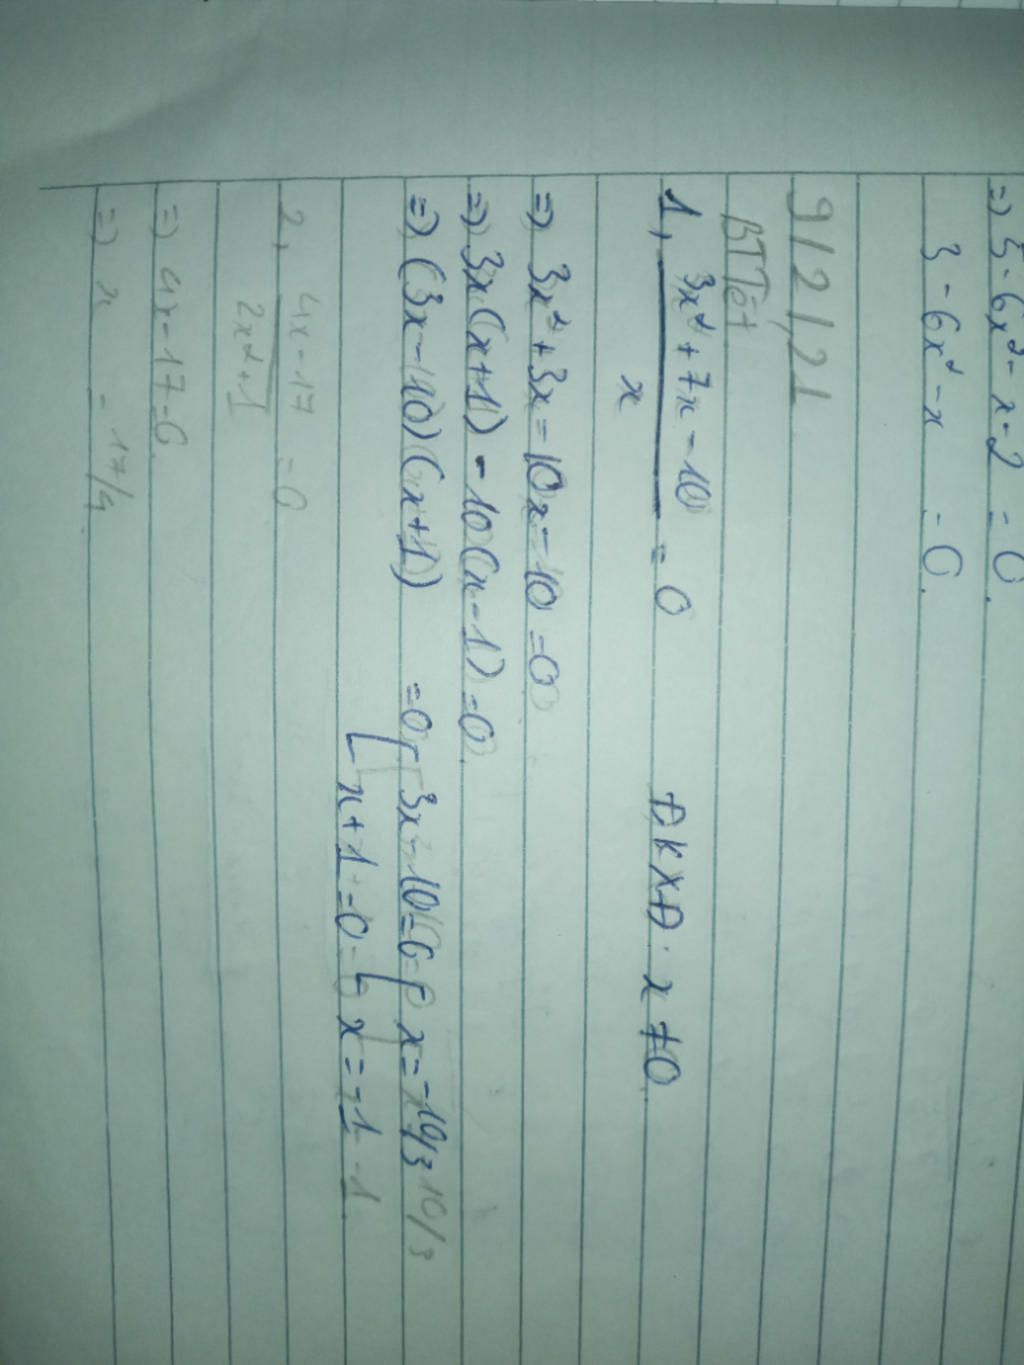 => 5-6x²-x-2 = 0.
3-6x²-x = 0.
9/2/21
BT Tết
1, 3x²+7x-10/x = 0 ĐKXĐ: x≠0
=> 3x²+3x-10x-10=0
=> 3x(x+1)-10(x-1)=0
=> (3x-10)(x+1) =0 [3x-10=0 [x=-10/3 10/3
[x+1=0 [x=-1 -1
2, 4x-17/2x²+1 =0
=> 4x-17=0
=> x = 17/4